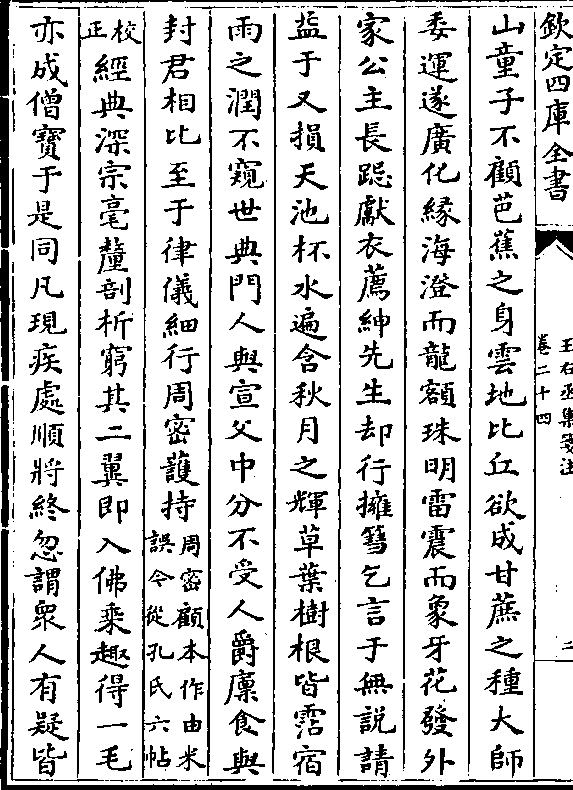 欽定四庫全書
王右丞集箋注
卷二十四
二
山童子不顧芭蕉之身雲地比丘欲成甘蔗之種大師
委運遂廣化緣海澄而龍額珠明雷震而象牙花發外
家公主長跽獻衣薦紳先生却行擁篲乞言于無説請
益于又損天池杯水遍含秋月之輝草葉樹根皆霑宿
雨之潤不窺世典門人與宣父中分不受人爵廩食與
封君相比至于律儀細行周密護持周密顧本作由米誤今從孔氏六帖
校正經典深宗毫釐剖析窮其二翼即入佛乘趣得一毛
亦成僧寶于是同凡現疾處順將終忽謂衆人有疑皆